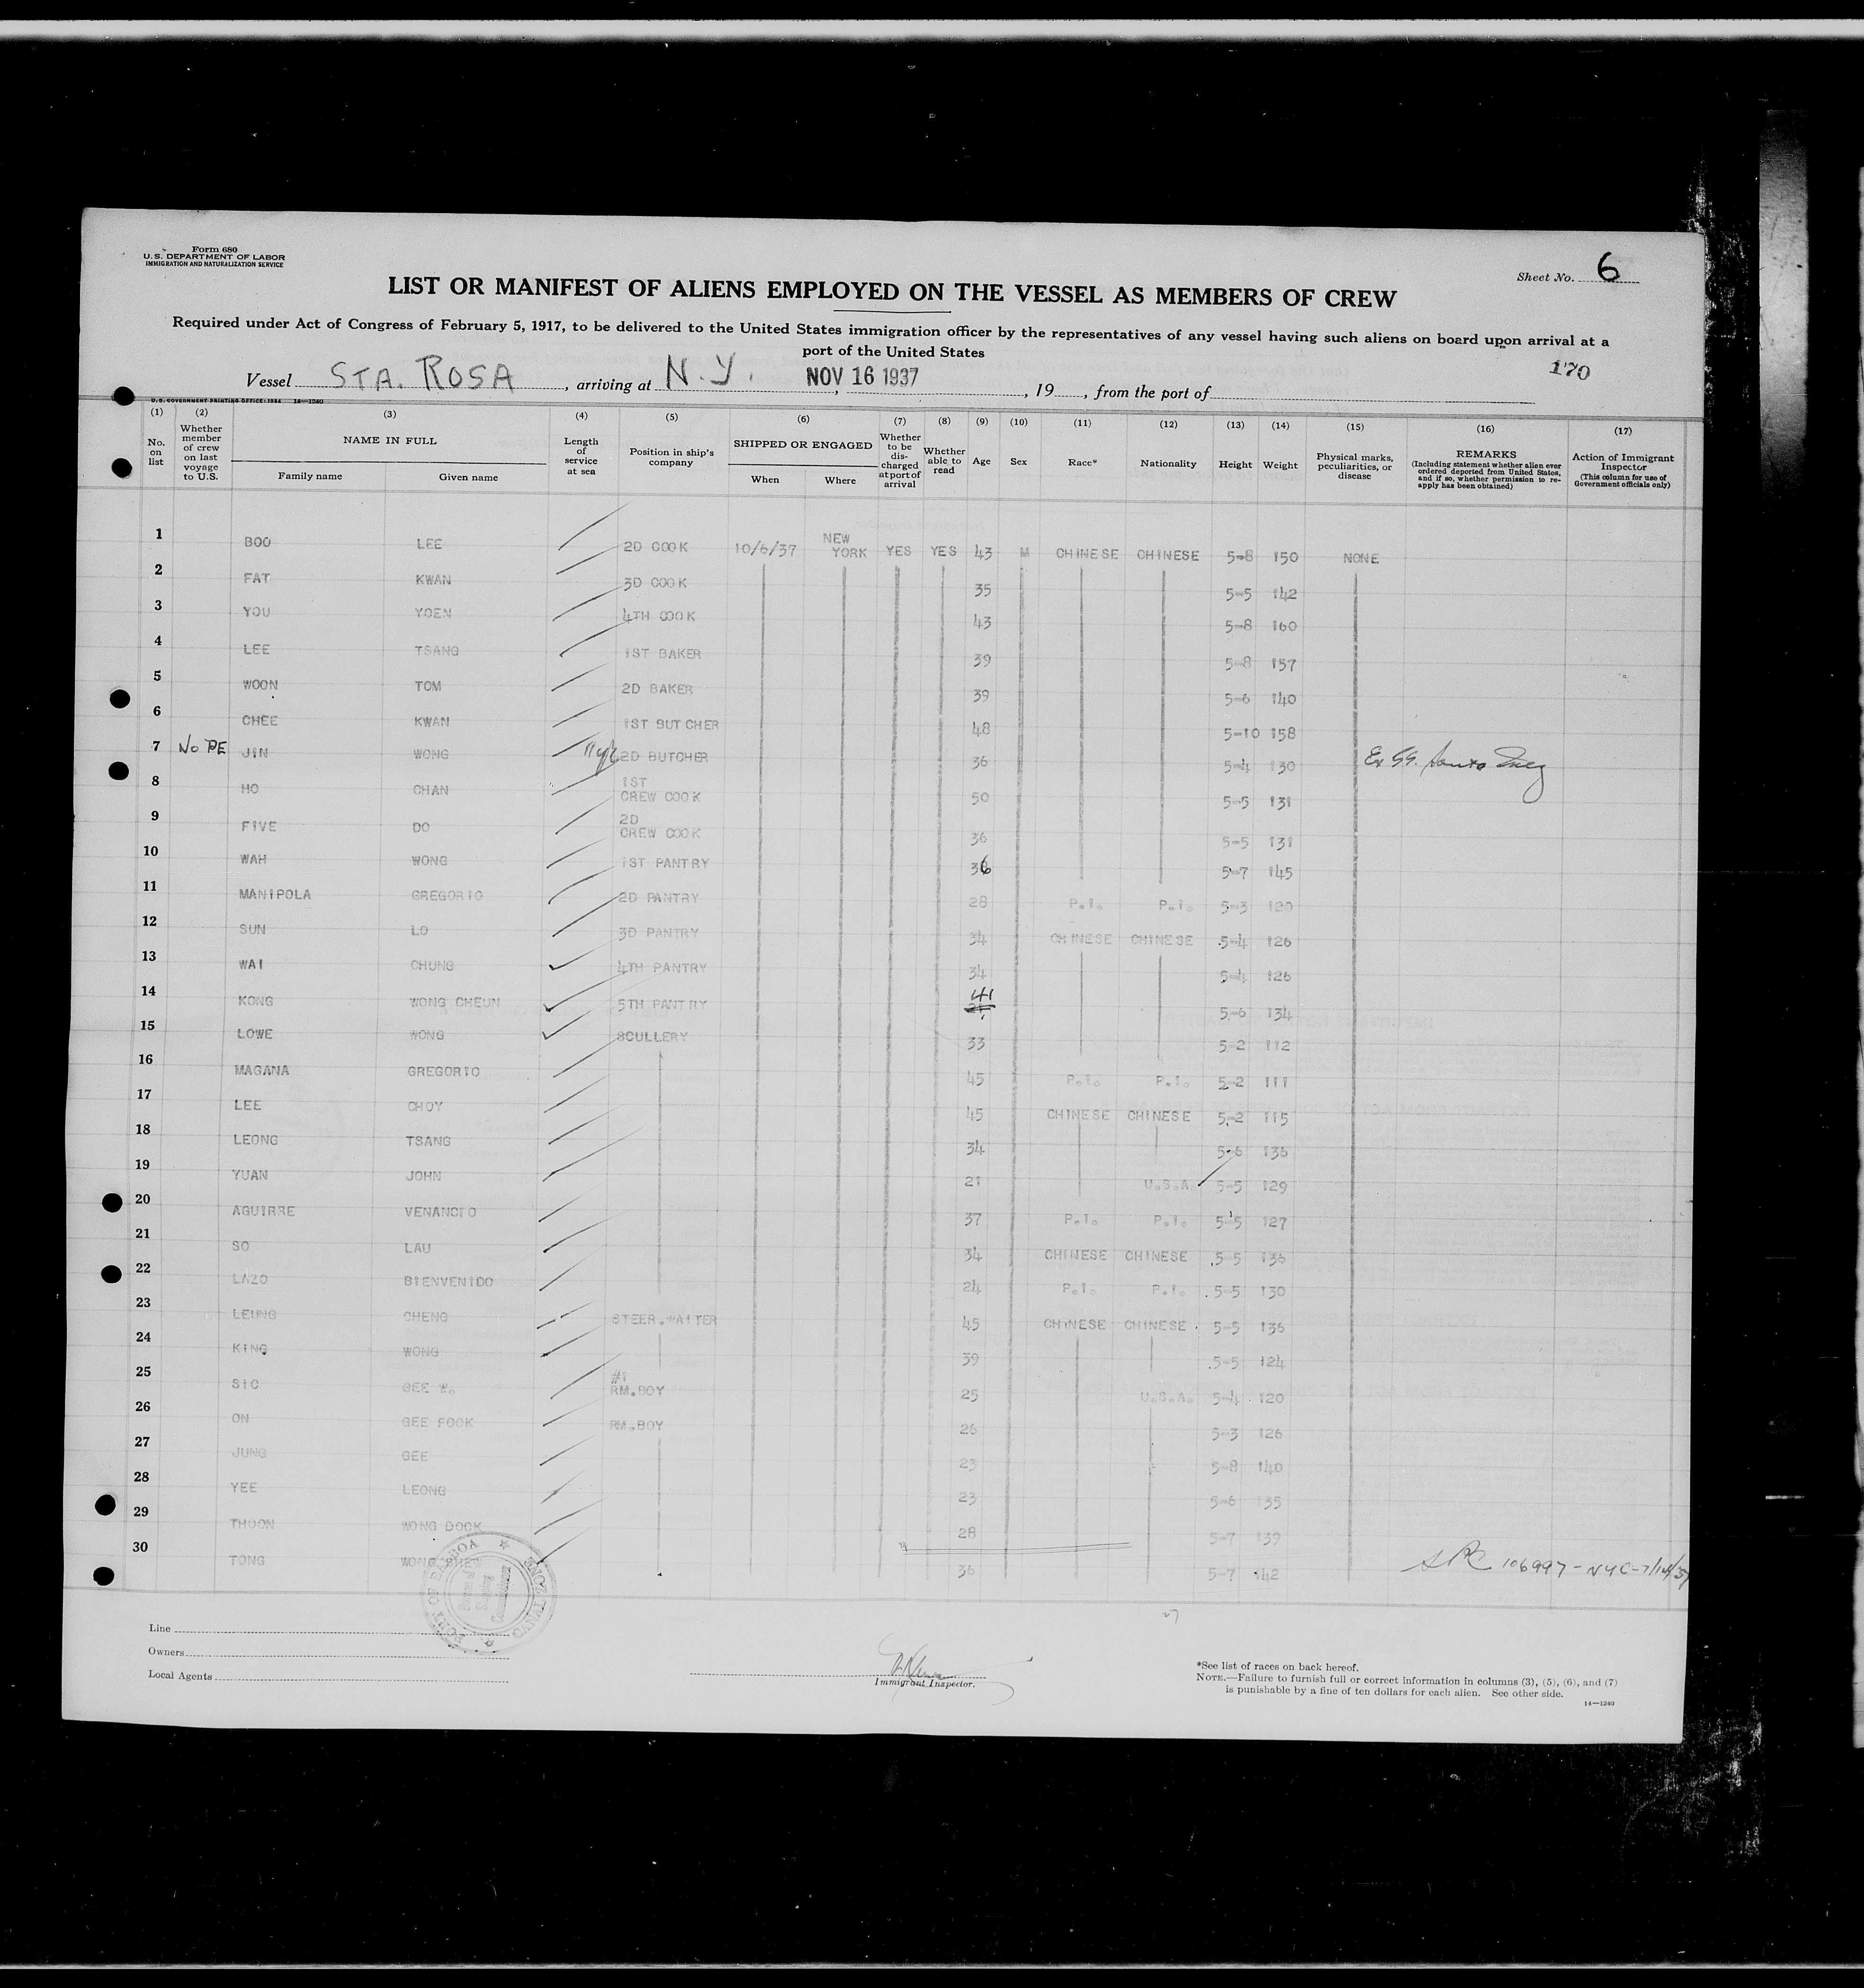 Form 680
U.S. DEPARTMENT OF LABOR
IMMIGRATION AND NATURALIZATION SERVICE
Sheet No. 6
LIST OR MANIFEST OF ALIENS EMPLOYED ON THE VESSEL AS MEMBERS OF CREW
Required under Act of Congress of February 5, 1917, to be delivered to the United States immigration officer by the representatives of any vessel having such aliens on board upon arrival at a
port of the United States
170
Vessel STA. ROSA, arriving at N.Y. NOV 16 1937, 19, from the port of
U.S. GOVERNMENT PRINTING OFFICE: 1934 14—1240
(1) (2) (3) (4) (5) (6) (7) (8) (9) (10) (11) (12) (13) (14) (15) (16) (17)
No. on list
Whether member of crew on last voyage to U.S.
NAME IN FULL
Family name Given name
Length of service at sea
Position in ship's company
SHIPPED OR ENGAGED
When Where
Whether to be discharged at port of arrival
Whether able to read
Age
Sex
Race*
Nationality
Height
Weight
Physical marks, peculiarities, or disease
REMARKS
(Including statement whether alien ever ordered deported from United States, and if so, whether permission to reapply has been obtained)
Action of Immigrant Inspector
(This column for use of Government officials only)
1 BOO LEE 2D COOK 10/6/37 NEW YORK YES YES 43 M CHINESE CHINESE 5-8 150 NONE
2 FAT KWAN 3D COOK 35 5-5 142
3 YOU YOEN 4TH COOK 43 5-8 160
4 LEE TSANG 1ST BAKER 39 5-8 157
5 WOON TOM 2D BAKER 39 5-6 140
6 CHEE KWAN 1ST BUTCHER 48 5-10 158
7 No PE JIN WONG 2D BUTCHER 36 5-4 130 Ex SS. Santa Inez
8 HO CHAN 1ST CREW COOK 50 5-5 131
9 FIVE DO 2D CREW COOK 36 5-5 131
10 WAH WONG 1ST PANTRY 36 5-7 145
11 MANIPOLA GREGORIO 2D PANTRY 28 P.I. P.I. 5-3 120
12 SUN LO 3D PANTRY 34 CHINESE CHINESE 5-4 126
13 WAI CHUNG 4TH PANTRY 34 5-4 126
14 KONG WONG CHEUN 5TH PANTRY 41 5-6 134
15 LOWE WONG SCULLERY 33 5-2 112
16 MAGANA GREGORIO 45 P.I. P.I. 5-2 111
17 LEE CHOY 45 CHINESE CHINESE 5-2 115
18 LEONG TSANG 34 5-6 136
19 YUAN JOHN 21 U.S.A. 5-5 129
20 AGUIRRE VENANCIO 37 P.I. P.I. 5-5 127
21 SO LAU 34 CHINESE CHINESE 5-5 136
22 LAZO BIENVENIDO 24 P.I. P.I. 5-5 130
23 LEUNG CHENG STEER.WAITER 45 CHINESE CHINESE 5-5 136
24 KING WONG 39 5-5 124
25 SIC GEE W. #1 RM.BOY 25 U.S.A. 5-4 120
26 ON GEE FOOK RM.BOY 26 5-3 126
27 JUNG GEE 23 5-8 140
28 YEE LEONG 23 5-6 135
29 THOON WONG DOCK 28 5-7 139
30 TONG WONG 36 5-7 142 106997-NYC-7/14/37
PORT OF BALBOA
CANAL ZONE
Shipping Commissioner
27
Line
Owners
Local Agents
Immigrant Inspector.
*See list of races on back hereof.
NOTE.—Failure to furnish full or correct information in columns (3), (5), (6), and (7)
is punishable by a fine of ten dollars for each alien. See other side.
14—1240